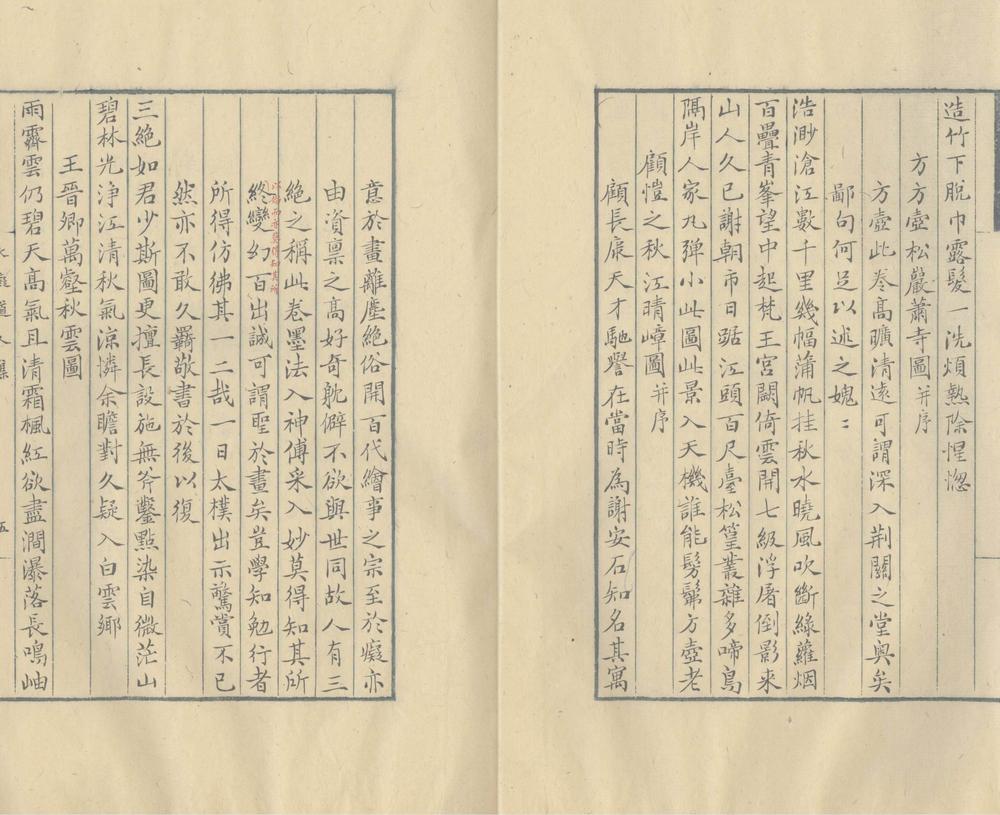 造竹下脫巾露髮一洗煩熱除惺惚
方方壺松巖蕭寺圖并序
方壺此卷高曠清遠可謂深入荆關之堂奧矣
鄙句何足以述之媿〻
浩渺滄江數千里幾幅蒲帆挂秋水曉風吹斷綠蘿烟
百疊青峯望中起梵王宮闕倚雲開七級浮屠倒影來
山人久已謝朝市日踞江頭百尺臺松篁叢雜多啼鳥
隔岸人家九彈小此圖此景入天機誰能髣髴方壺老
顧愷之秋江晴嶂圖并序
顧長康天才馳譽在當時為謝安石知名其寓
意於畫離塵絕俗開百代繪事之宗至於癡亦
由資稟之高好奇躭僻不欲與世同故人有三
絕之稱此卷墨法入神傅采入妙莫得知其所
終變幻百出誠可謂聖於畫矣豈學知勉行者
所得仿彿其一二哉一日太樸出示驚賞不已
然亦不敢久羈敬書於後以復
三絕如君少斯圖更擅長設施無斧鑿點染自微茫山
碧林光浄江清秋氣涼憐余瞻對久疑入白雲鄉
王晉卿萬壑秋雲圖
雨霽雲仍碧天高氣且清霜楓紅欲盡澗瀑落長鳴岫
五